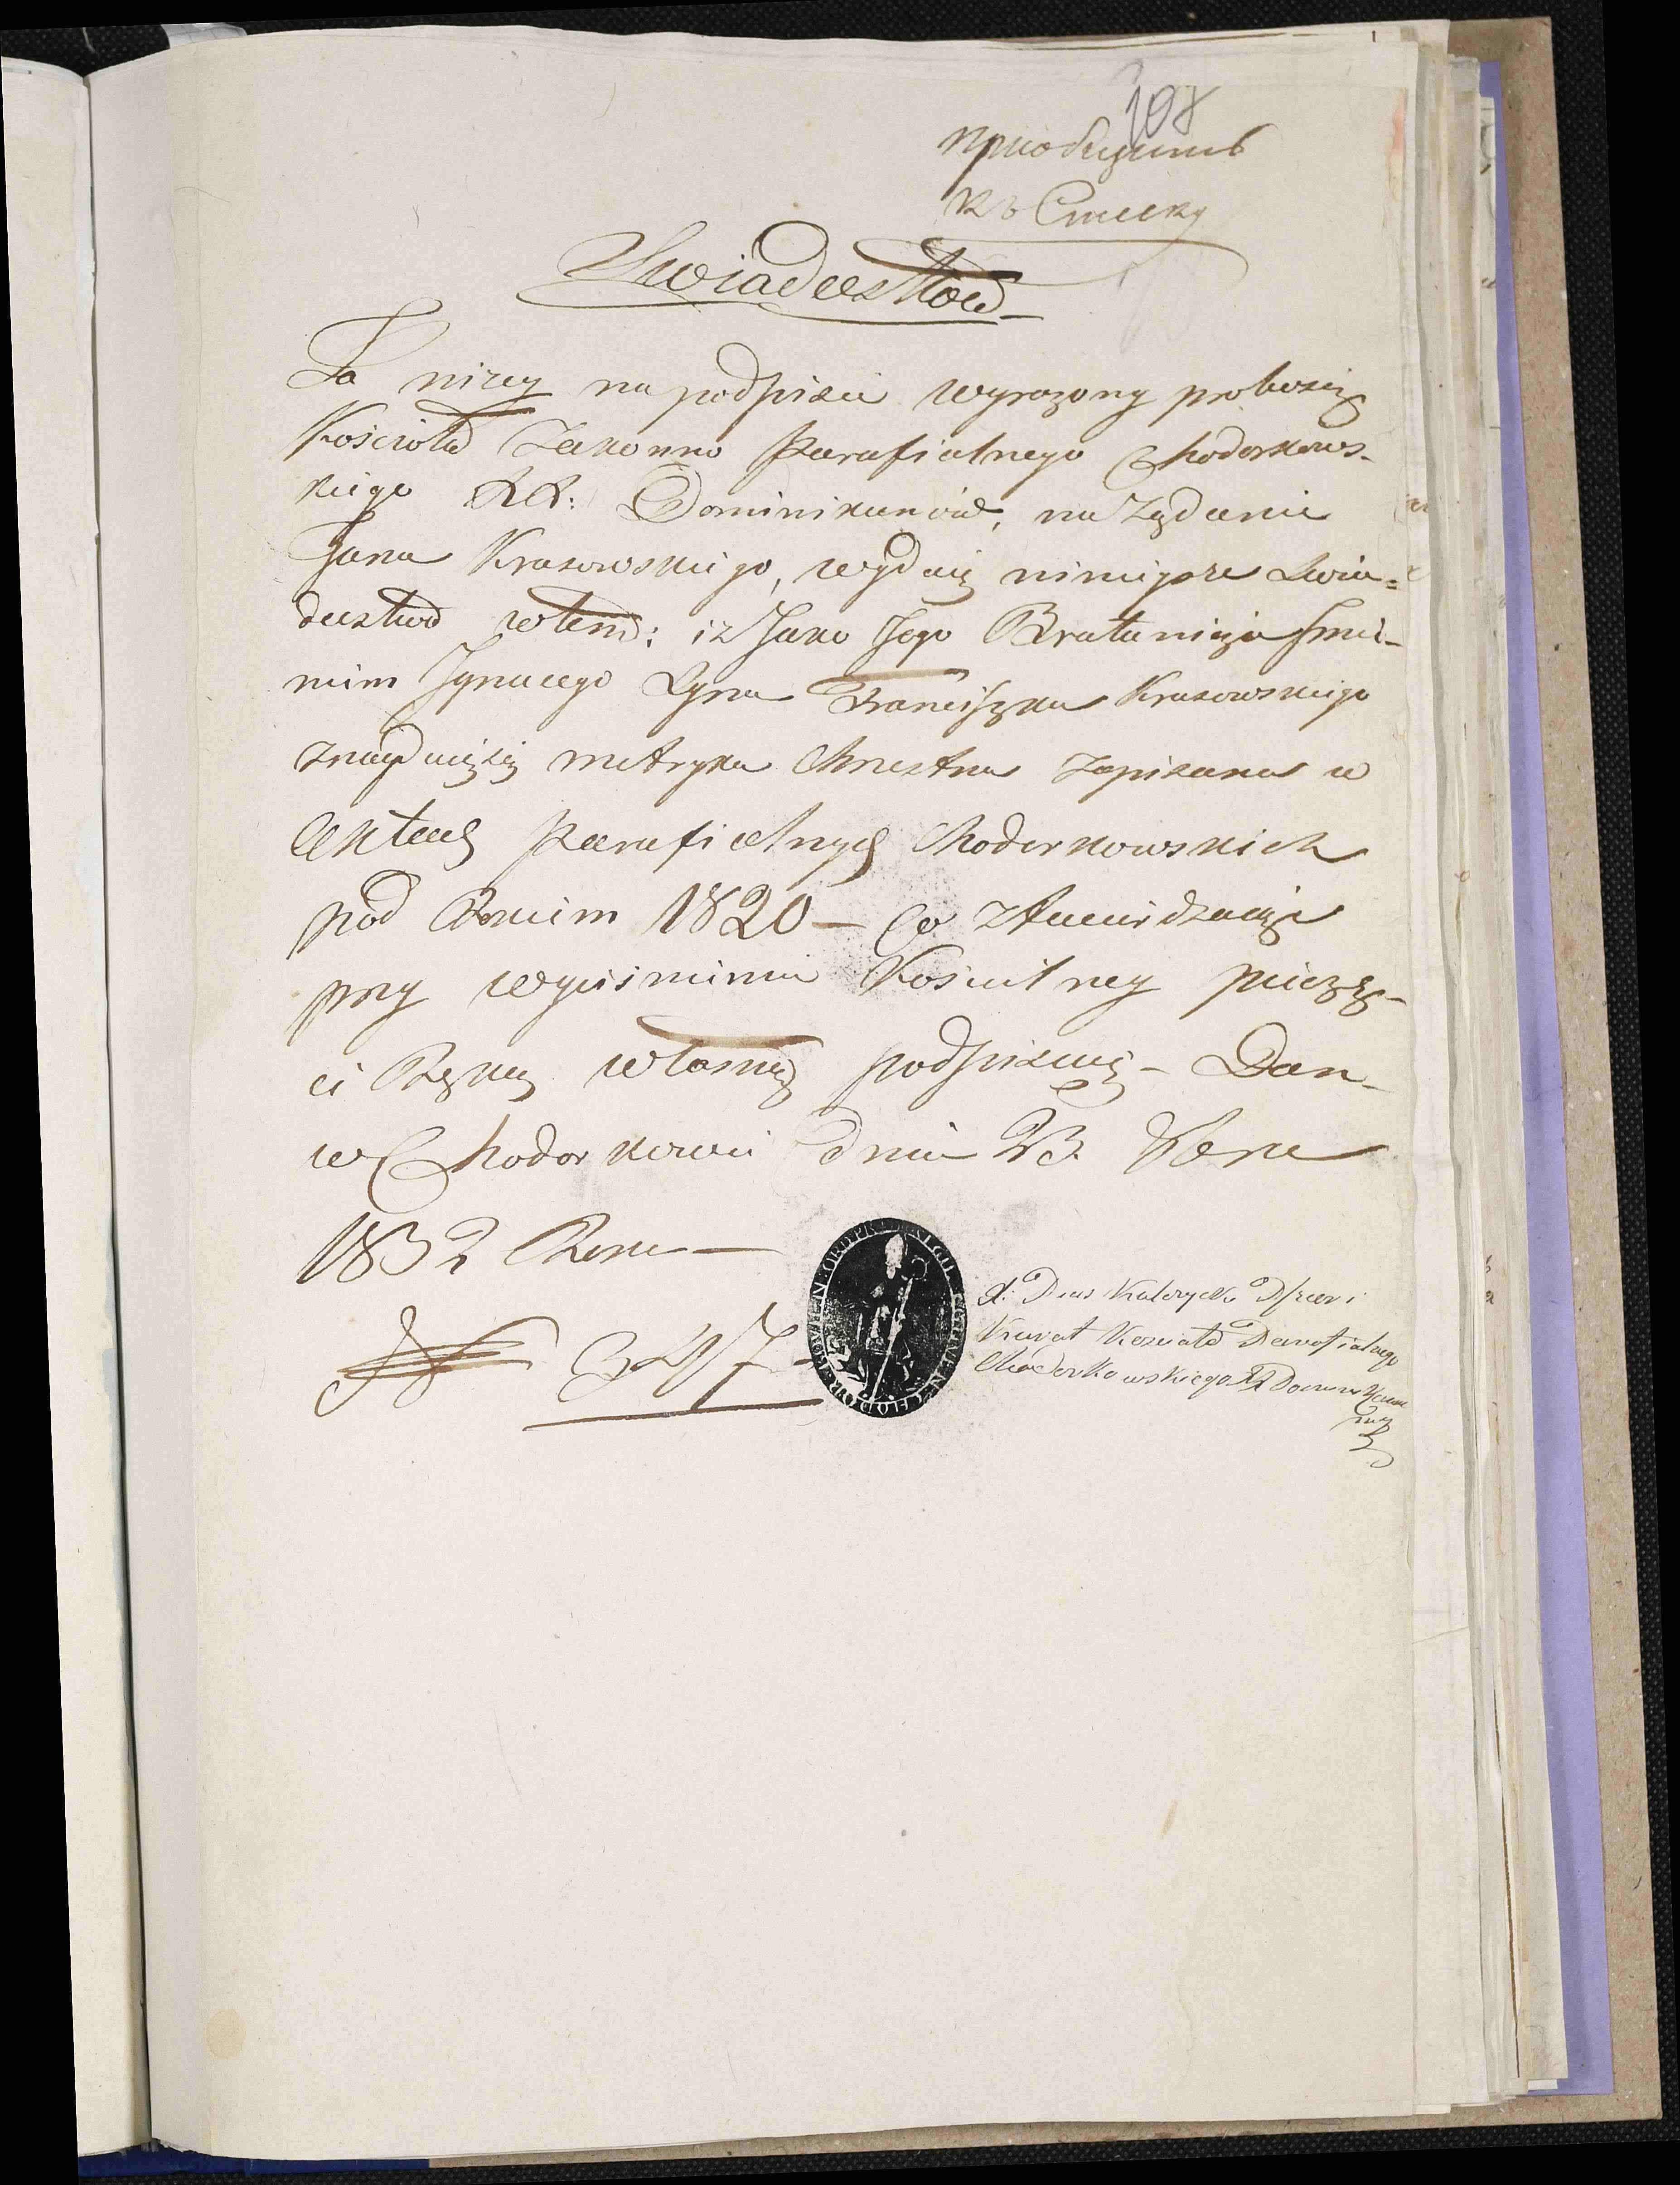 108
приобщить
къ списку
Swiadectwo
Ja niżey na podpisie wyrażony proboszcz
Kościoła Zakonno Parafialnego Chodorkows-
kiego XX: Dominikanów, na żądanie
Jana Krasowskiego, wydaię ninieysze Swia=
dectwo wtem: iż Jako Jego Bratanicza Imie-
niem Ignacego Syna Franciszka Krasowskiego
znayduię się metryka Chrestna Zapisana w
Aktach Parafialnych Chodorkowskich
pod Rokiem 1820 – Co ztwierdzaiąc
przy wyciśnieniu Kościelney pieczę-
ci Ręką własną podpisuię – Dan
w Chodorkowie dnia 23
1832 Roku –
X: Pius
Kurat Koscioła Parafialnego
Chodorkowskiego XX Domini